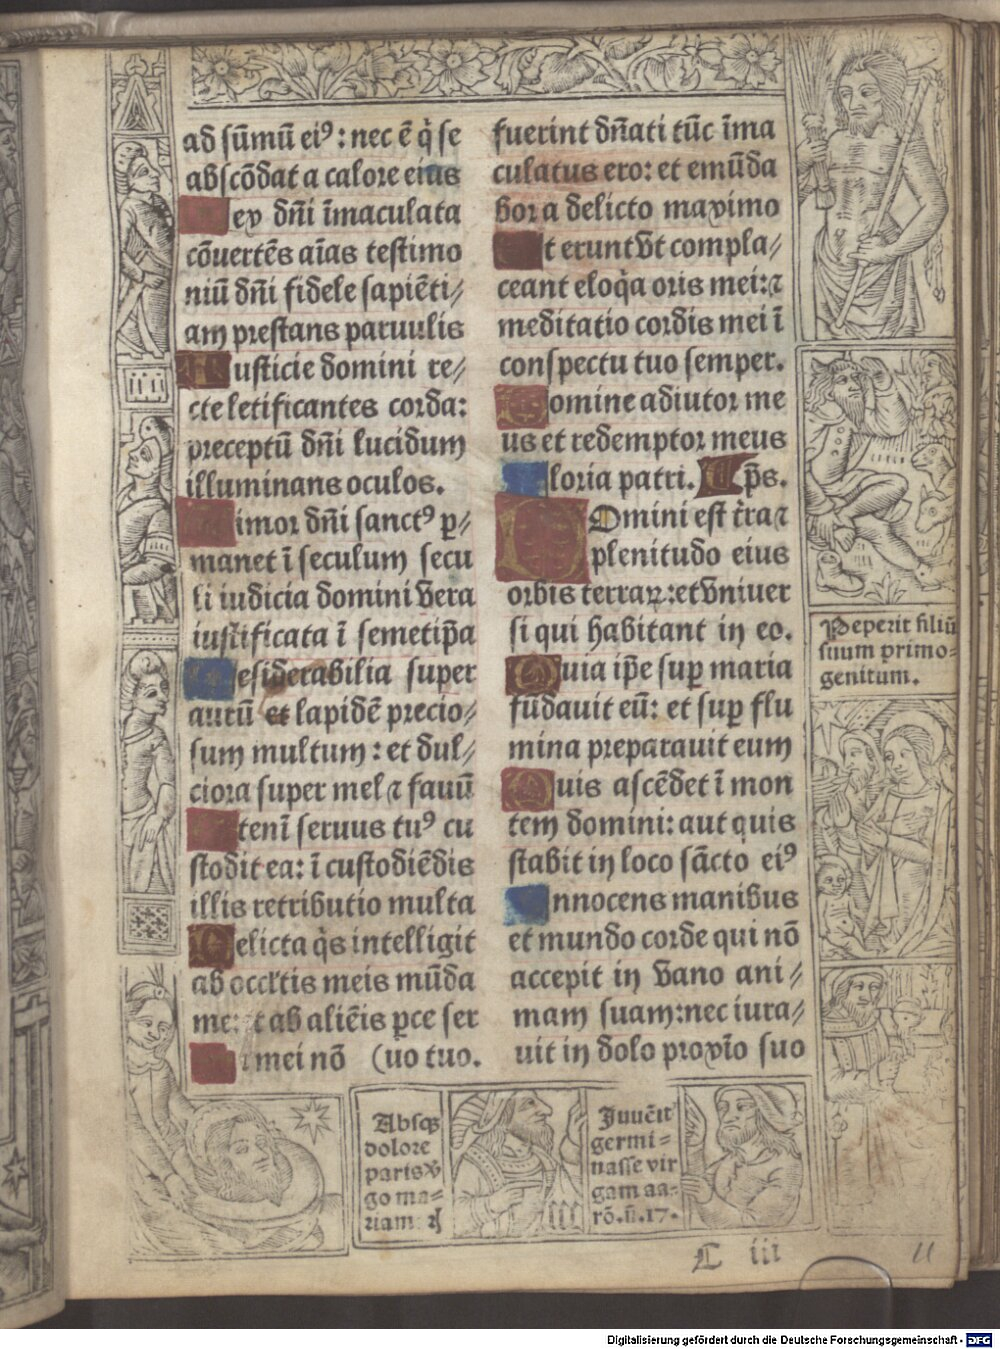 ad sūmū eiꝰ: nec ē q̇ se
abscōdat a calore eius
Lex dn̄i īmaculata
cōuertēs aīas testimo
niū dn̄i fidele sapiēti⸗
am prestans paruulis
Iusticie domini re⸗
cte letificantes corda:
preceptū dn̄i lucidum
illuminans oculos.
Timor dn̄i sanctꝰ ꝑ⸗
manet ī seculum secu
li iudicia domini vera
iustificata ī semetip̄a
Desiderabilia super
aurū et lapidē precio⸗
sum multum: et dul⸗
ciora super mel ⁊ fauū
Etenī seruus tuꝰ cu
stodit ea: ī custodiēdis
illis retributio multa
Delicta q̇s intelligit
ab occl̄tis meis mūda
me: et ab aliēis ꝑce ser
i mei nō (uo tuo.
fuerint dn̄ati tūc īma
culatus ero: et emūda
bor a delicto maximo
Et erunt vt compla⸗
ceant eloq̇a oris mei: ⁊
meditatio cordis mei ī
conspectu tuo semper.
Domine adiutor me
us et redemptor meus
Gloria patri. p̄s.
Domini est t̄ra ⁊
plenitudo eius
orbis terraꝝ: et vniuer
si qui habitant in eo.
Quia ip̄e suꝑ maria
fūdauit eū: et suꝑ flu
mina preparauit eum
Quis ascēdet ī mon
tem domini: aut quis
stabit in loco sācto eiꝰ
Innocens manibus
et mundo corde qui nō
accepit in vano ani⸗
mam suam: nec iura⸗
uit in dolo proxīo suo
Peperit filiū
suum primo⸗
genitum.
Absqꝫ
dolore
paris v̄
go ma⸗
riam
Iuuēit
germi⸗
nasse vir
gam aa⸗
rō. ii. 17.
C iii
11
Digitalisierung gefördert durch die Deutsche Forschungsgemeinschaft - DFG